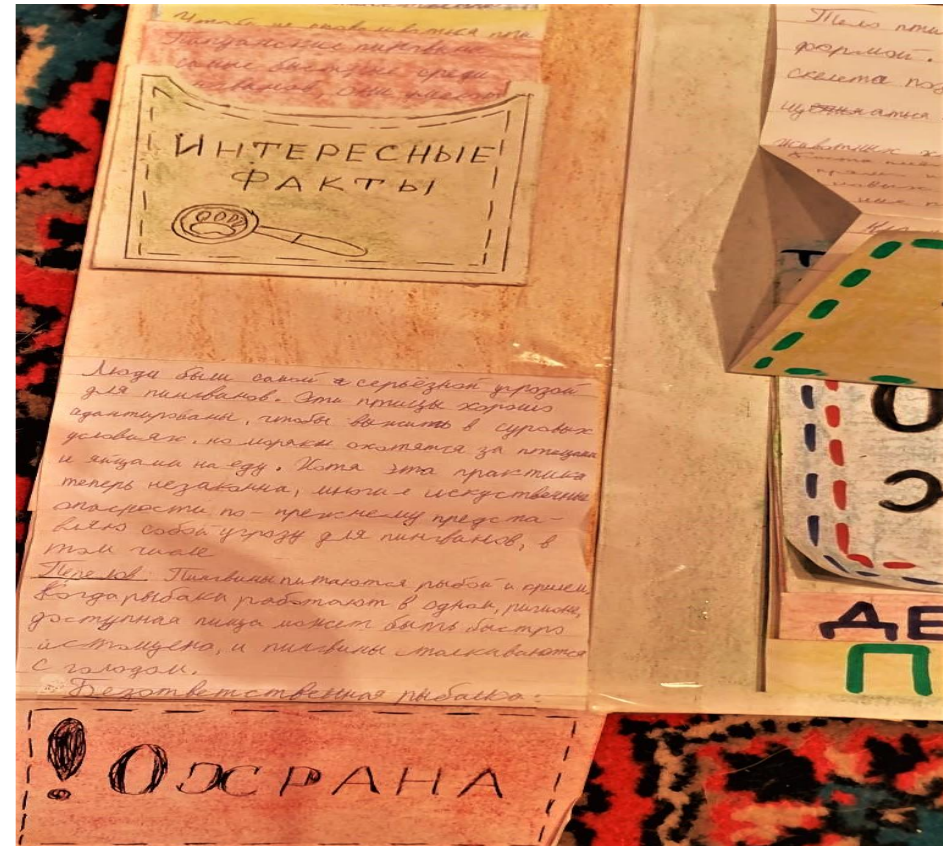 Чтобы не
Папуанские пингвины
самые быстрые среди
пингвинов, они
ИНТЕРЕСНЫЕ
ФАКТЫ
Люди были самой серьёзной угрозой
для пингвинов. Эти птицы хорошо
адаптированы, чтобы выжить в суровых
условиях, но моряки охотятся за птицами
и яйцами на еду. Хотя эта практика
теперь незаконна, многие искуственные
опасности по-прежнему предста-
вляю собой угрозу для пингвинов, в
том числе
Перелов. Пингвины питаются рыбой и крилем.
Когда рыбаки работают в одном, регионе,
доступная пища может быть быстро
истощена, и пингвины сталкиваются
с голодом.
Безответственная рыбалка.
! ОХРАНА
Тело пти
формой.
скелета под
животных х
ДЕ
П